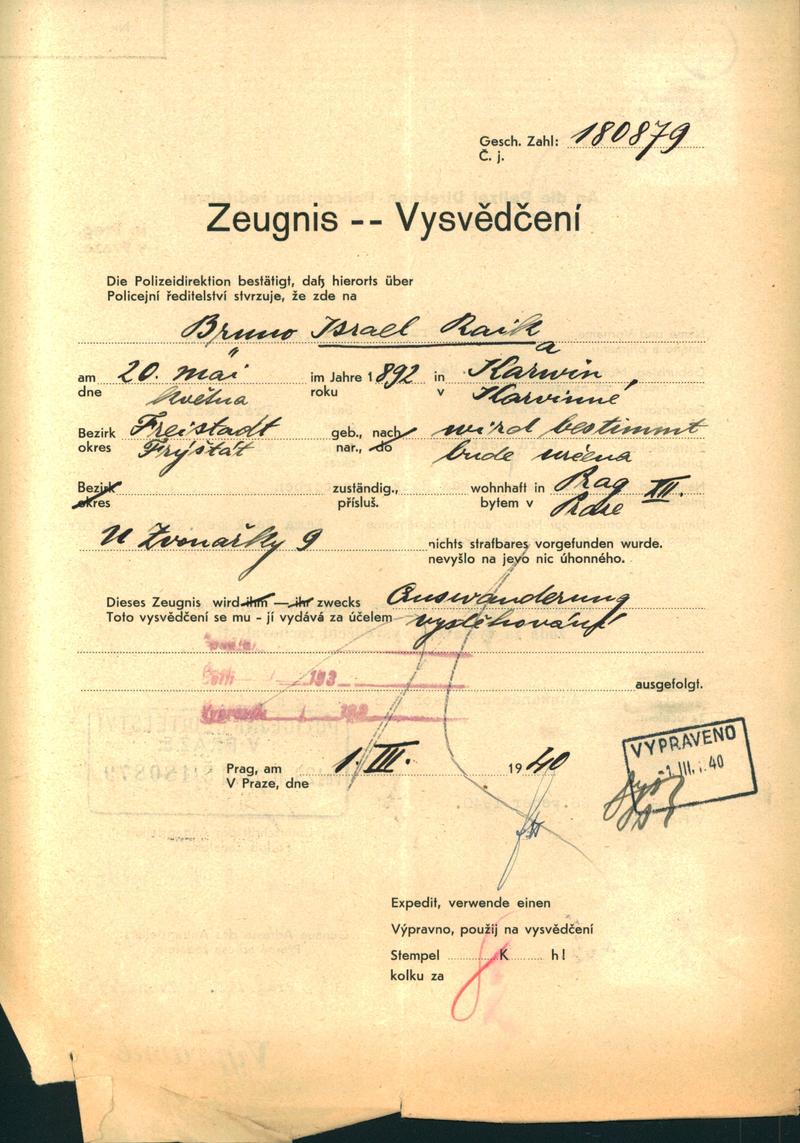 Gesch. Zahl: 180879
Č. j.
Zeugnis -- Vysvědčení
Die Polizeidirektion bestätigt, daß hierorts über
Policejní ředitelství stvrzuje, že zde na
Bruno Israel Raik
a
am 20. mai im Jahre 1892 in Karwin,
dne května roku v Karvinné
Bezirk Freistadt geb., nach wird bestimmt
okres Fryštát nar., do bude určena
Bezirk zuständig., wohnhaft in Prag XII.
okres přísluš. bytem v Praze
U Zvonařky 9 nichts strafbares vorgefunden wurde.
nevyšlo na jevo nic úhonného.
Dieses Zeugnis wird ihm — ihr zwecks Auswanderung
Toto vysvědčení se mu - jí vydává za účelem vystěhování
193
ausgefolgt.
Prag, am 1. III. 1940
V Praze, dne
VYPRAVENO
-1. III. 40
Expedit, verwende einen
Výpravno, použij na vysvědčení
Stempel K h!
kolku za